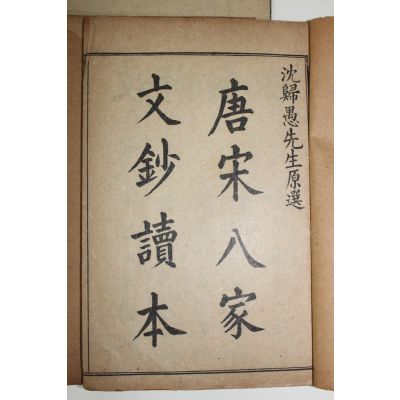 沈歸愚先生原選
唐宋八家
文鈔讀本